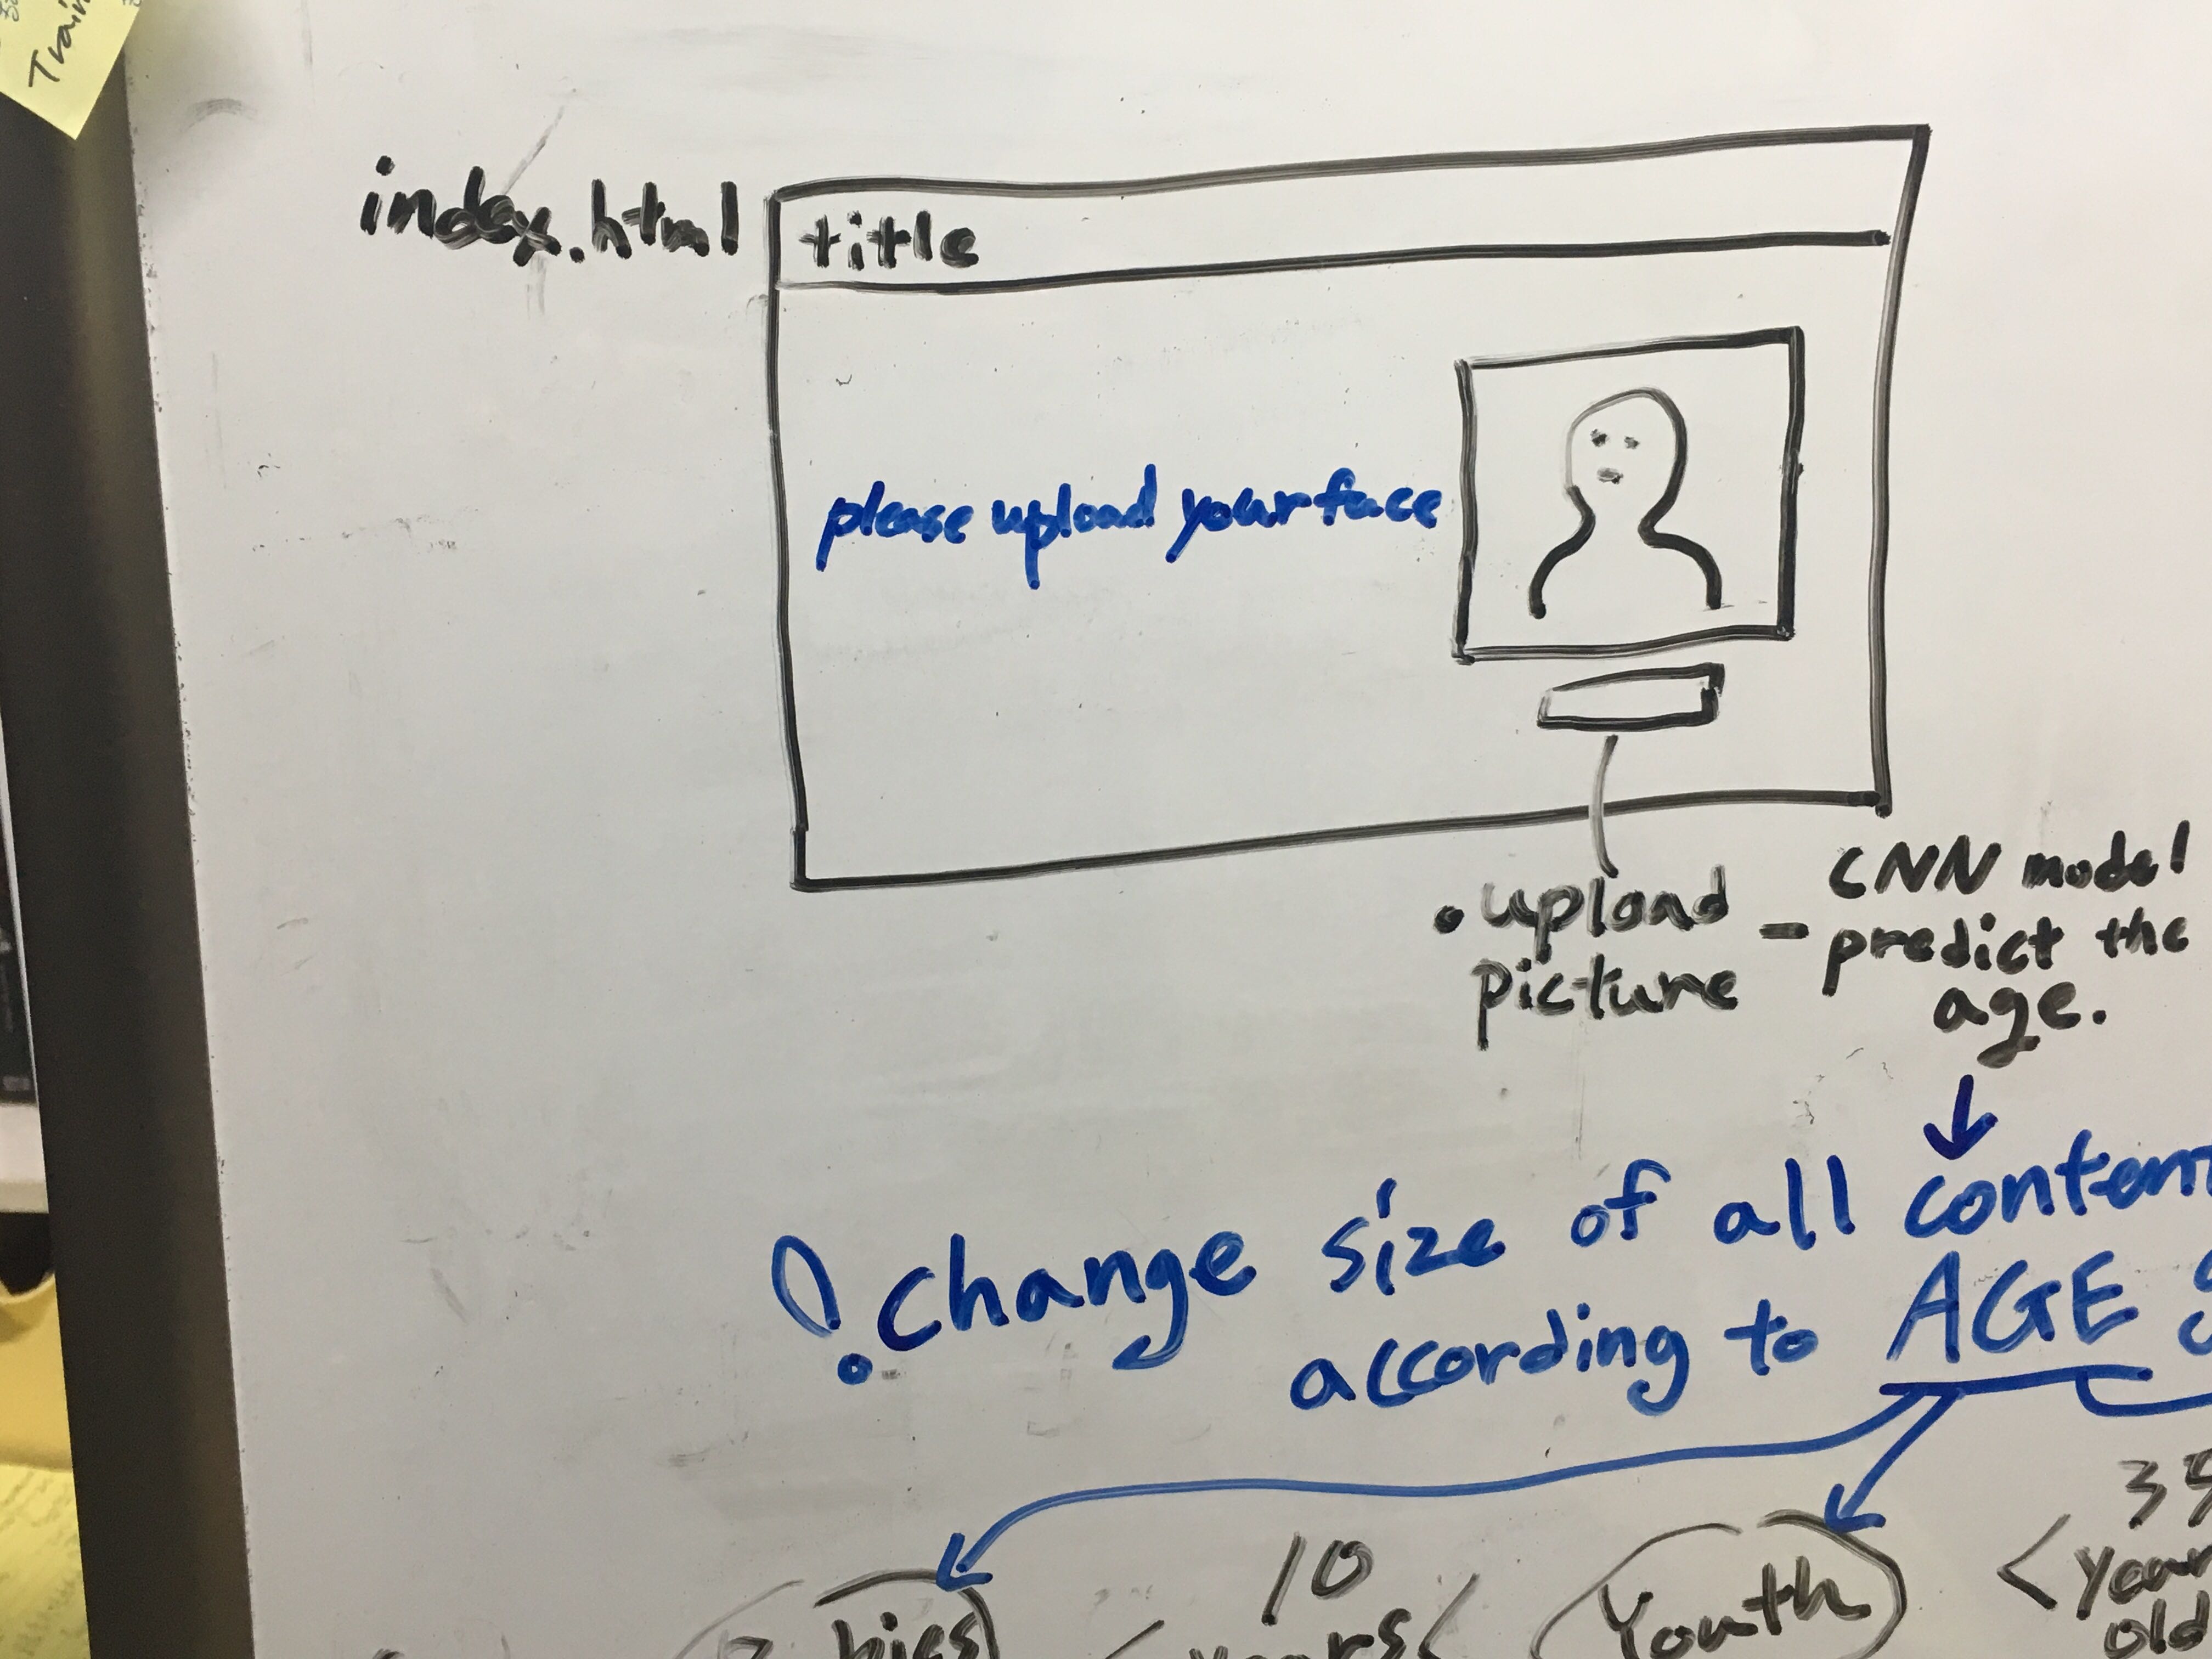 Train
index.html
title
please upload your face
• upload picture
- CNN model
predict the
age.
↓
! change size of all
according to AGE
10
Youth
<
old